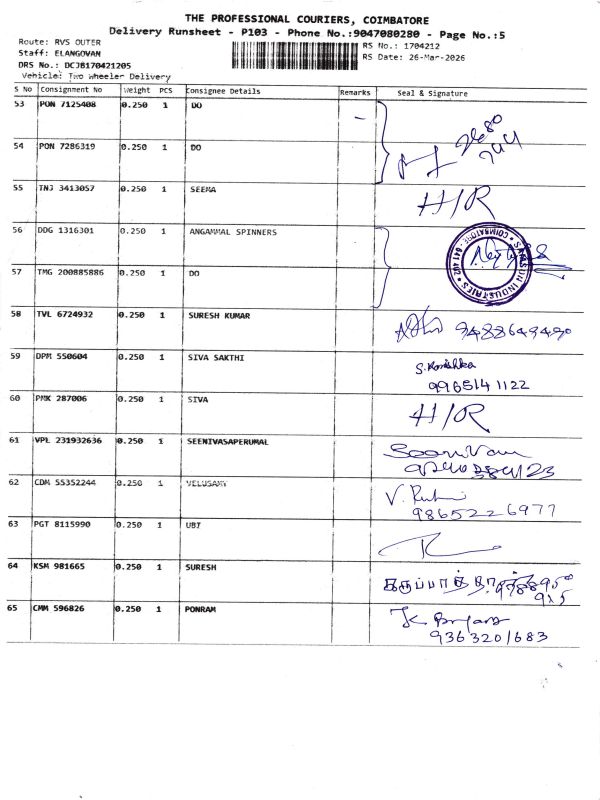 THE PROFESSIONAL COURIERS, COIMBATORE
Delivery Runsheet - P103 - Phone No.:9047080280 - Page No.:5
Route: RVS OUTER
Staff: ELANGOVAN
DRS No.: DCJB170421205
Vehicle: Two Wheeler Delivery
RS No.: 1704212
RS Date: 26-Mar-2026
S No Consignment No Weight PCS Consignee Details Remarks Seal & Signature
53 PON 7125408 0.250 1 DO -
54 PON 7286319 0.250 1 DO
55 TNJ 3413057 0.250 1 SEEMA H/R
56 DDG 1316301 0.250 1 ANGAMMAL SPINNERS
57 TMG 200885886 0.250 1 DO
58 TVL 6724932 0.250 1 SURESH KUMAR
59 DPM 550604 0.250 1 SIVA SAKTHI
9965141122
60 PMK 287006 0.250 1 SIVA H/R
61 VPL 231932636 0.250 1 SEENIVASAPERUMAL
62 CDM 55352244 0.250 1 VELUSAMY
9865226977
63 PGT 8115990 0.250 1 UBT
64 KSM 981665 0.250 1 SURESH
65 CMM 596826 0.250 1 PONRAM
9363201683